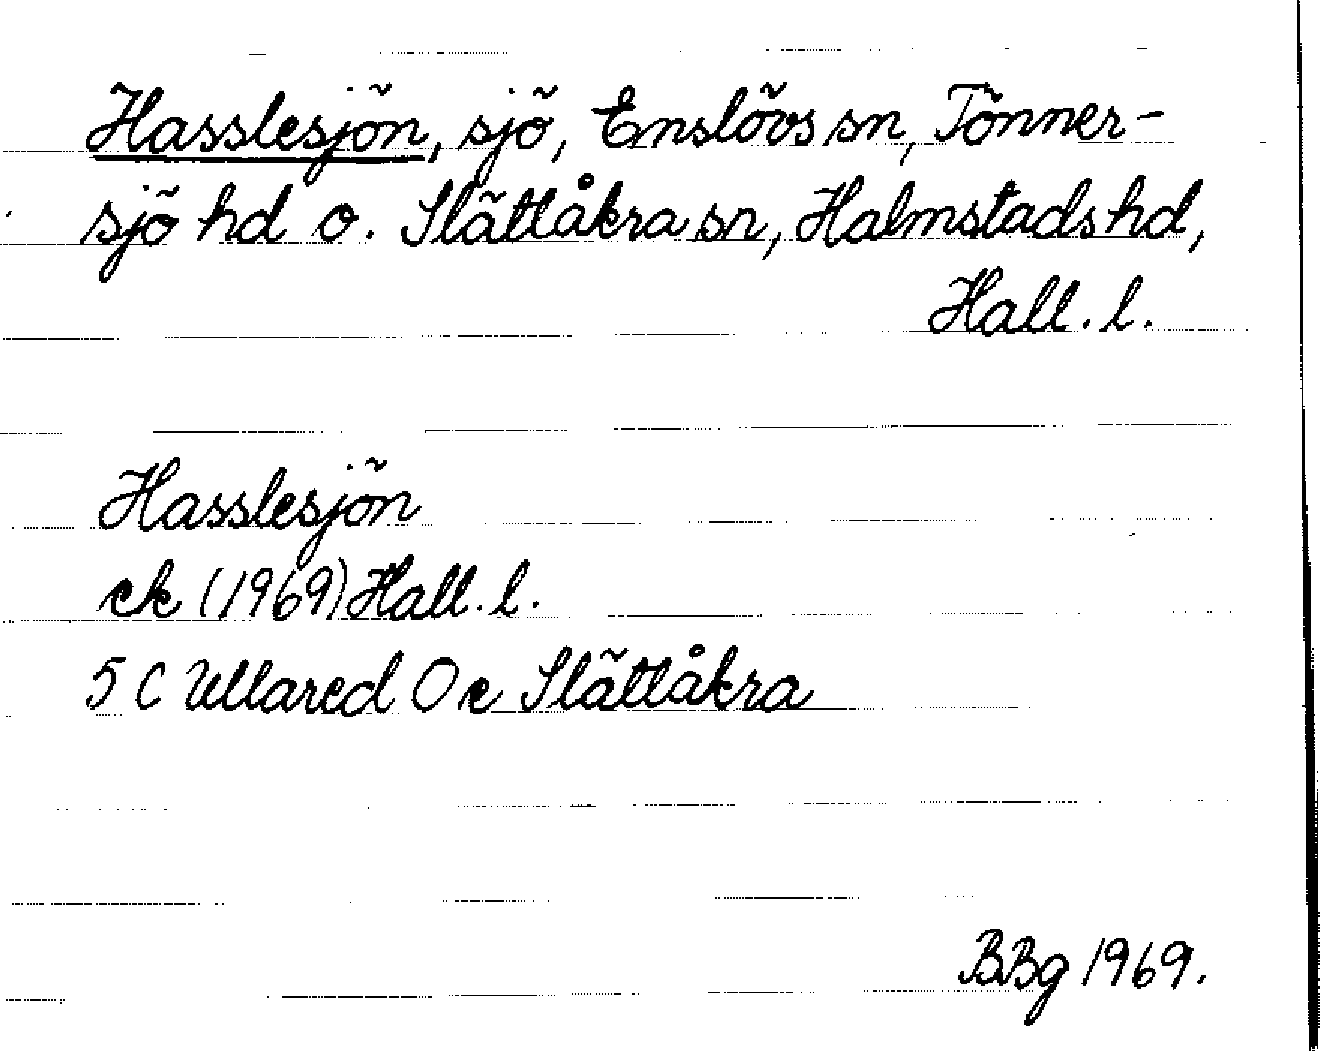 Hasslesjön, sjö, Enslövs sn, Tönner-
sjö hd o. Slättåkra sn, Halmstads hd,
Hall. l.
Hasslesjön
ek (1969) Hall. l.
5 C Ullared 0 e Slättåkra
BBg 1969.